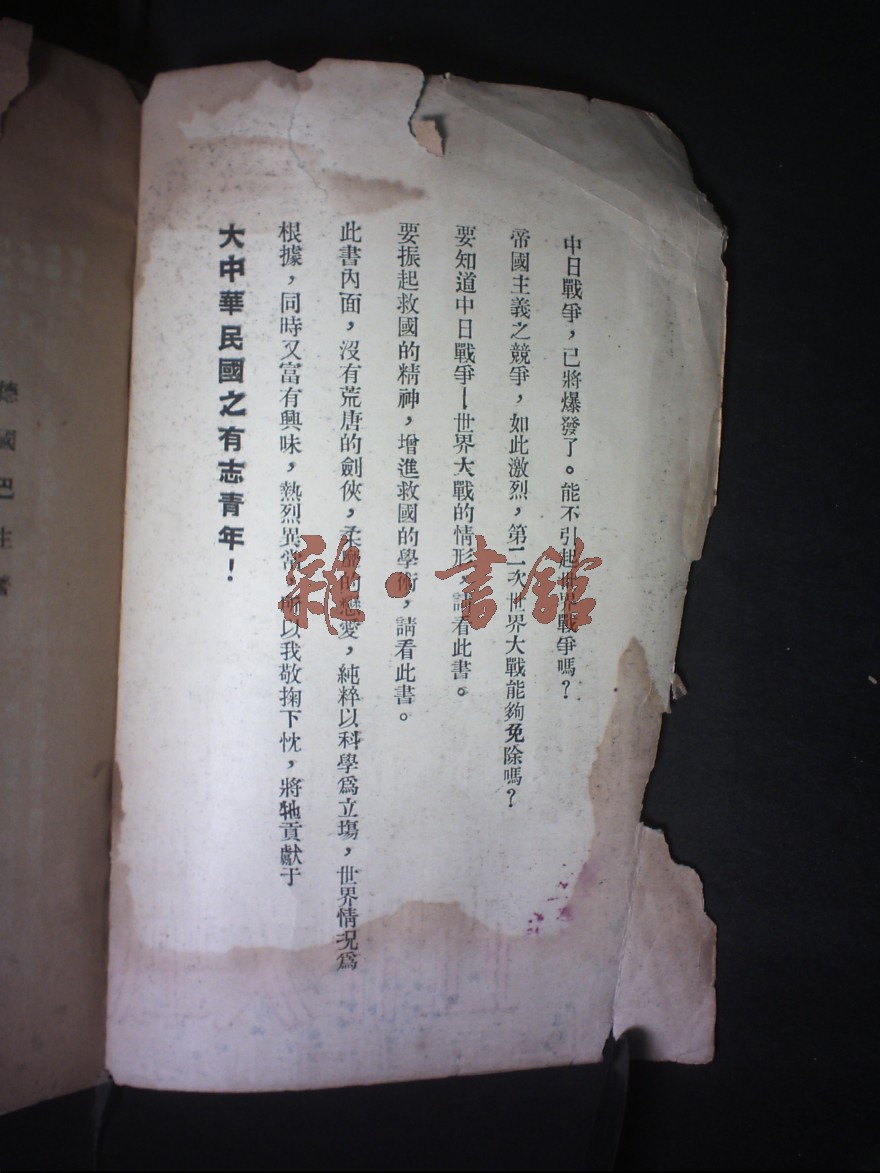 中日戰爭，已將爆發了。能不引起世界戰爭嗎？
帝國主義之競爭，如此激烈，第二次世界大戰能夠免除嗎？
要知道中日戰爭—世界大戰的情形，請看此書。
要振起救國的精神，增進救國的學術，請看此書。
此書內面，沒有荒唐的劍俠，柔靡的戀愛，純粹以科學爲立塲，世界情況爲
根據，同時又富有興味，熱烈異常，所以我敬掬下忱，將牠貢獻于
大中華民國之有志青年！
德國巴
雜·書館